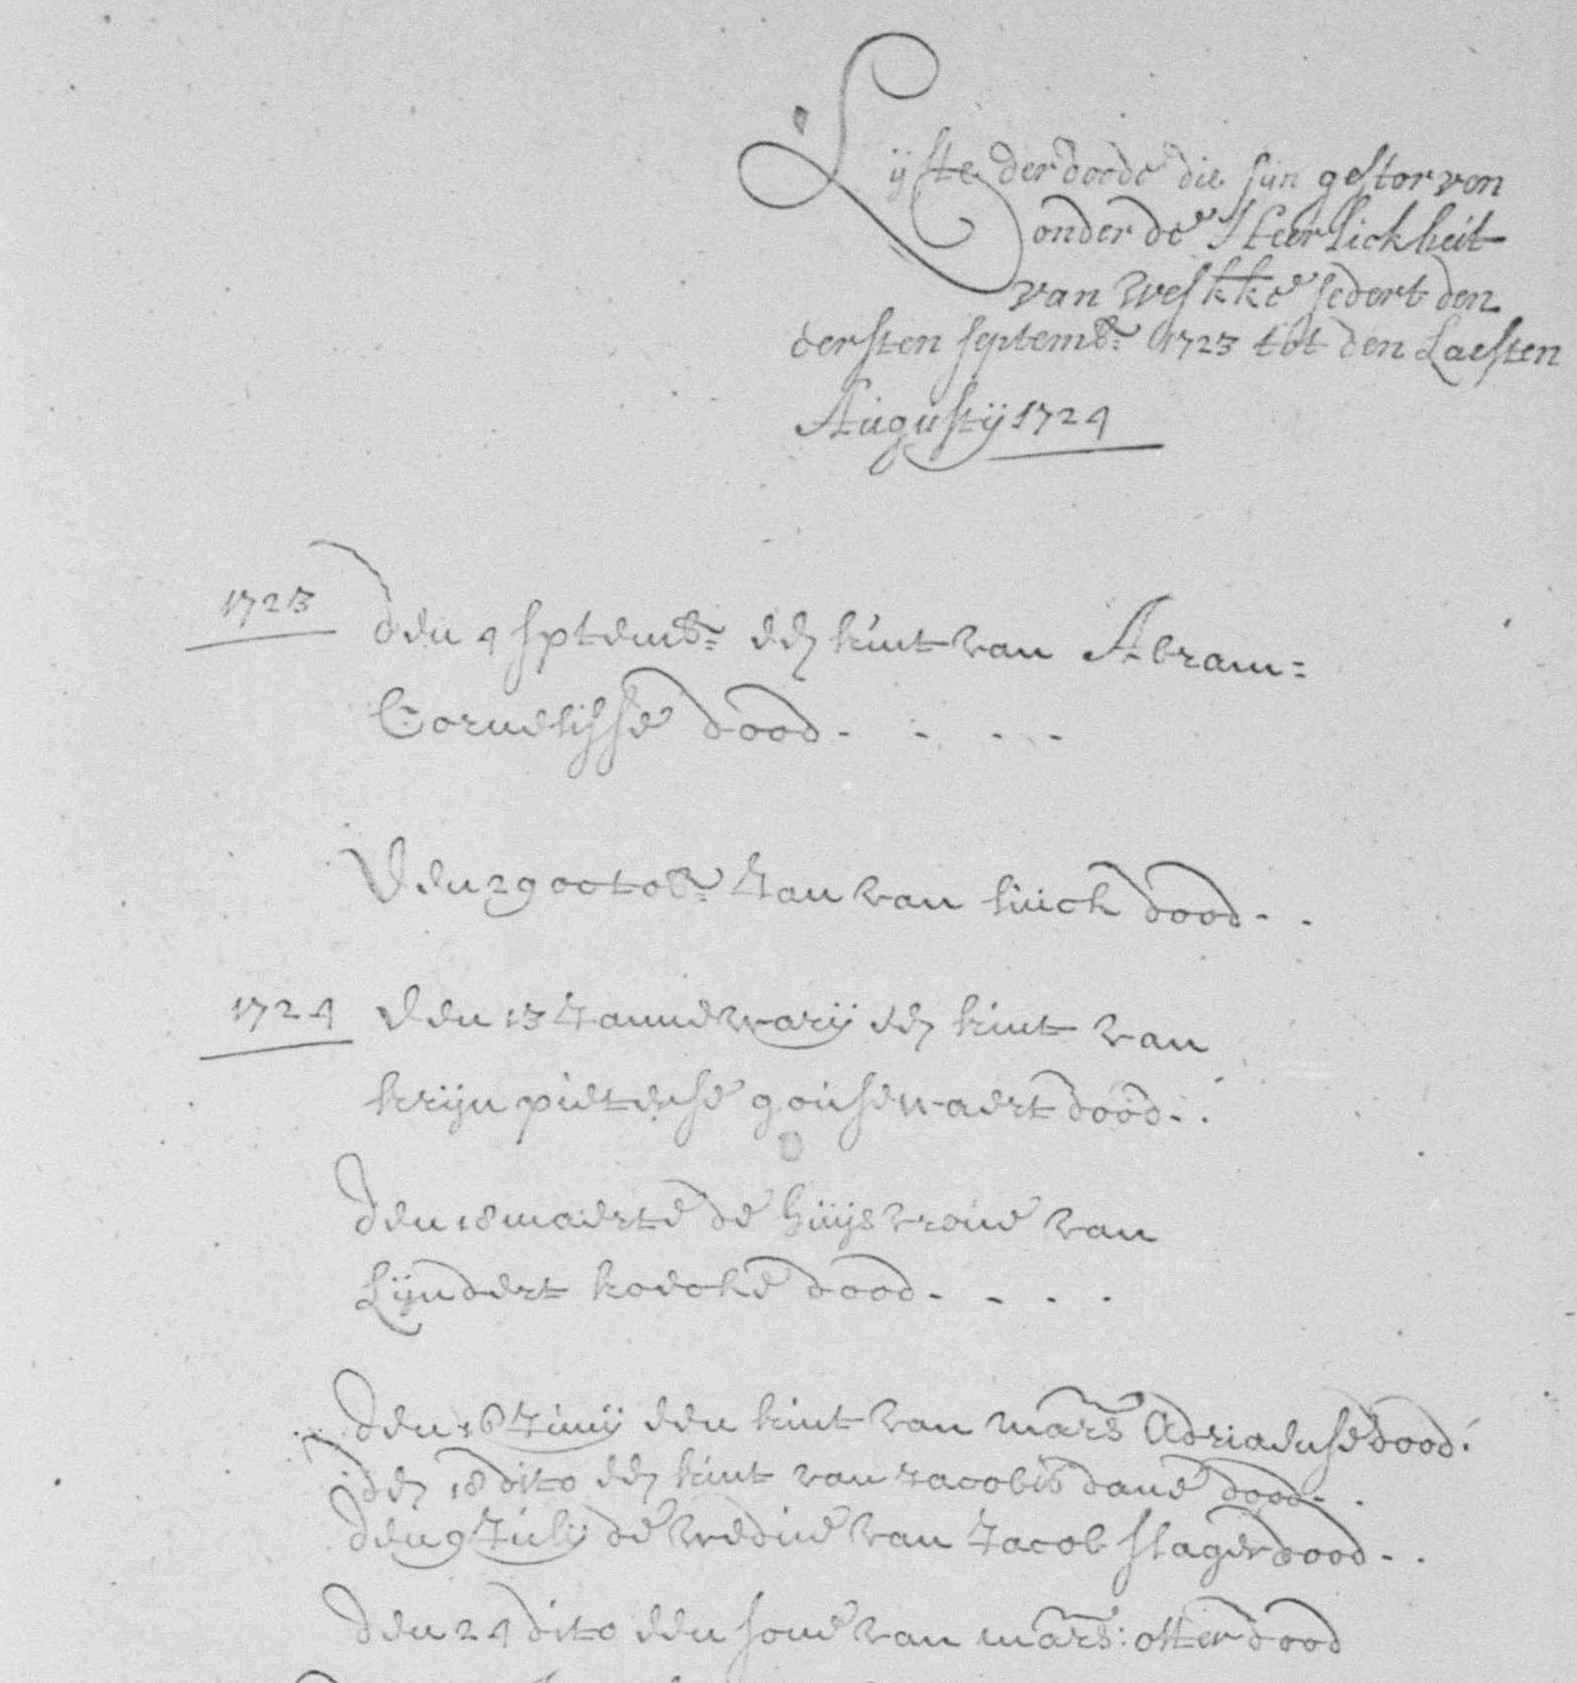 Lijste der doode die sijn gestorven
onder de Heerlickheit
van Westkke sedert den
eersten septemb: 1723 tot den Laesten
Augustij 1724
1723 den 4 sptemb: een kint van Abram=
Cornelisse dood - - - -
Den 29 octob: Jan van luick dood - -
1724 Den 13 Jannewarij een kint van
krijn pieterse gousewaert dood - .
den 18 maerte de huijsvrouw van
Lijndert koecke dood - - - -
Den 16 Junij een kint van mars Adriaense dood.
den 18 dito een kint van Jacobis dane dood - .
den 9 Julij de weduwe van Jacob slager dood - .
Den 24 dito een sone van mars: otter dood